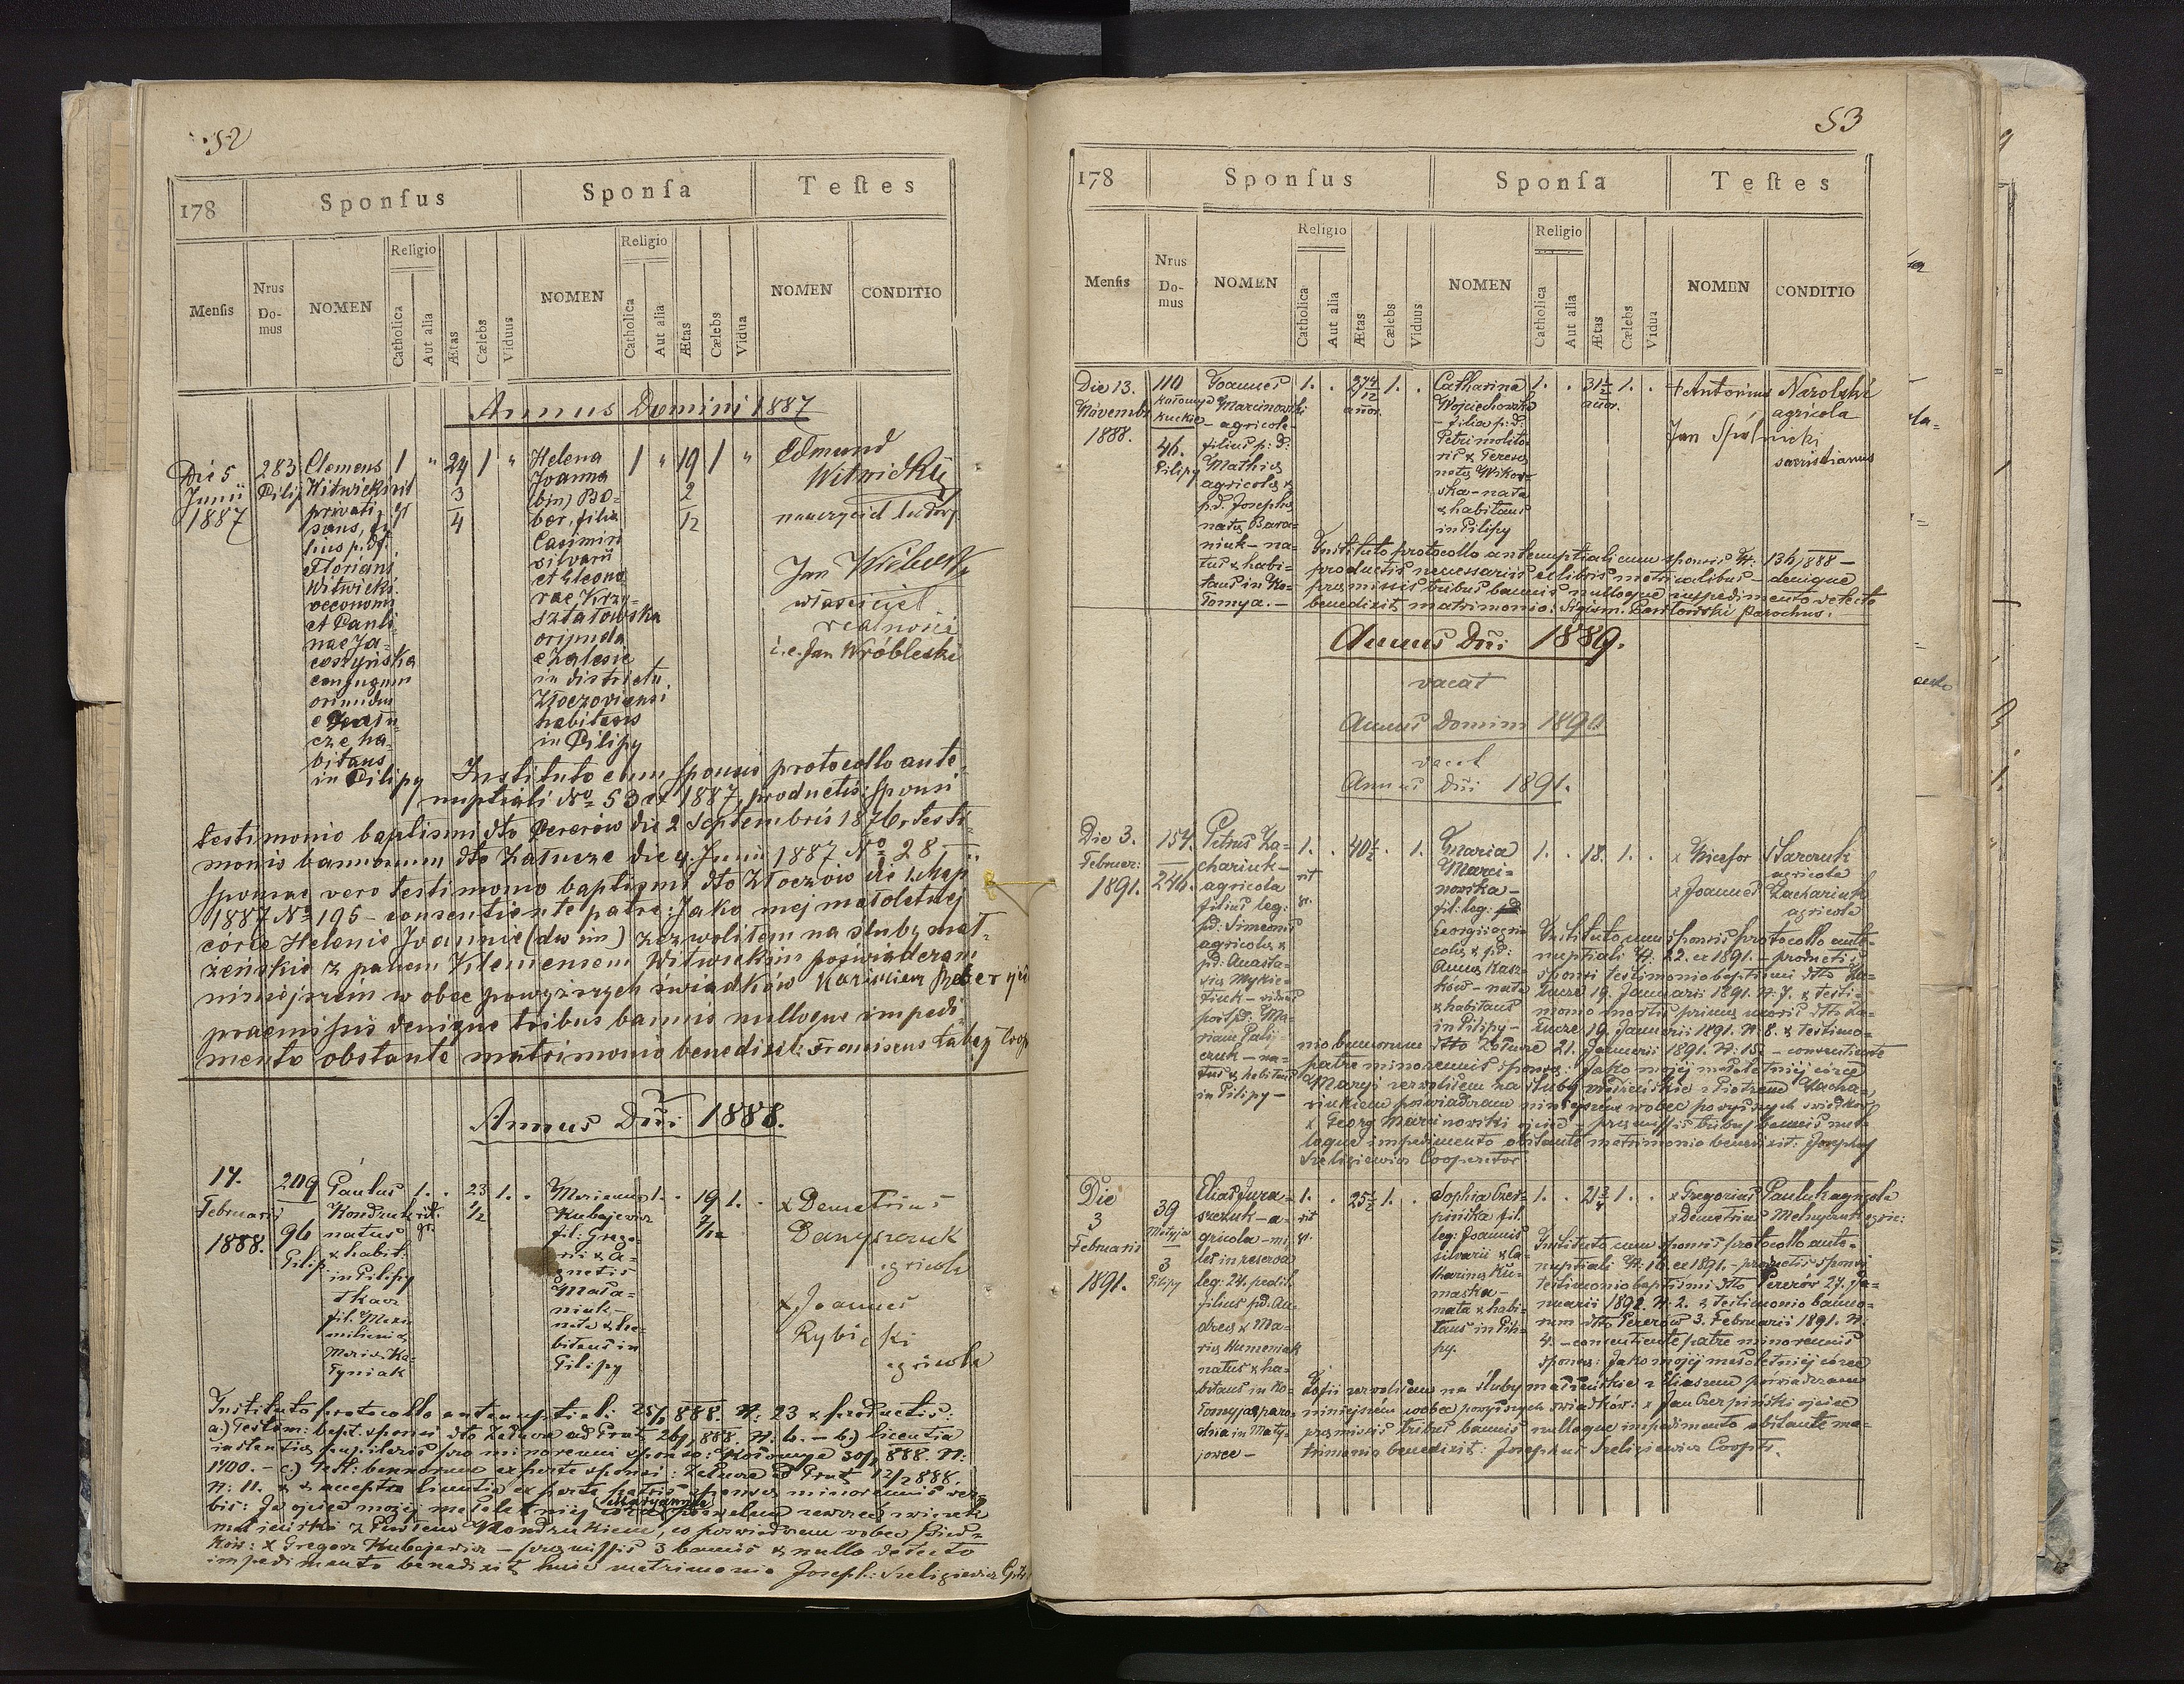 52
178
Sponsus
Sponsa
Testes
Mensis
Nrus Do-mus
NOMEN
Religio
Catholica
Aut alia
Ætas
Cælebs
Viduus
NOMEN
Religio
Catholica
Aut alia
Ætas
Cælebs
Vidua
NOMEN
CONDITIO
Annus Domini 1887
Die 5
Junii
1887
283
Pilip
Clemens
Witwicki
privati-
sans, fi-
lius p. df.
Floriani
Witwicki
oeconomi
et Pauli-
nae Ja-
conjugum
oriundus
cze ha-
bitans
in Pilipy
1 " 24 1 "
3
4
Helena
Joanna
(bin) Bo-
ber, filia
Casimiri
silvarii
et Eleono
rae Krzy-
sztalowska
oriunda
e Zalesie
in districtu
Złoczoviensi
habitans
in Pilipy
1 " 19 1 "
2
12
Edmund
Witwicki
nauczyciel ludowy
Jan
właściciel
realności
i.e. Jan Wróblewski
Instituto cum sponsis protocollo ante-
nuptiali No 53 ex 1887, productis: sponsi
testimonio baptismi dto Pererów die 2 Septembris 1876, testi-
monio bannorum dto Załucze die 4. Junii 1887 No 28
sponsae vero testimonio baptismi dto Złoczów die 1. Maji
1887 No 195 - consentiente patre: Jako mej małoletniej
córce Helenie Joannie (dw im) zezwoliłem na śluby mał-
żeńskie z panem Klemensem Witwickim poświadczam
niniejszém w obec powyższych świadków Kazimierz Bober ojciec
praemissis denique tribus bannis nulloque impedi-
mento obstante matrimonio benedixit: Franciscus Łabaz Coop
Annus Dni 1888.
14.
Februarii
1888.
209
96
Pilip
Paulus
Kondruk
natus
& habit:
in Pilipy
fil. Maxi
miliani &
Mariae Ka-
tyniak
1. . 23 1. .
1/2
rit.
gr.
Marianna
Kubajewicz
fil: Grego-
rii & A-
gnetis
Mała-
niuk -
nata & ha-
bitans in
Pilipy
1. . 19 1. .
7/12
x Demetrius
Danyszczuk
agricola
x Joannes
Rybicki
agricola
Instituto protocollo antenuptiali: 25/1 888. N: 23 & productis:
a.) Testim: bapt. sponsi dto Załucze ad Prut 26/1 888. N: 6. - b.) licentia
instantiae pupilaris pro minorenni sponso: Kołomyja 30/1 888. N:
1700. - c.) Test: bannorum ex parte sponsi: Załucze ad Prut 12/2 888.
N: 11. & accepta licentia ex parte patris sponsae minorennis ver-
bis: Ja ojciec mojej małoletniej córce Maryannie pozwalam zawrzeć związek
małżeński z Pawłem Kondrukiem, co poświadczam wobec świad-
ków: x Gregorz Kubajewicz - praemissis 3 bannis & nullo detecto
impedimento benedixit huic matrimonio Joseph: Szeligiewicz
53
178
Sponsus
Sponsa
Testes
Mensis
Nrus Do-mus
NOMEN
Religio
Catholica
Aut alia
Ætas
Cælebs
Viduus
NOMEN
Religio
Catholica
Aut alia
Ætas
Cælebs
Vidua
NOMEN
CONDITIO
Die 13.
Novembr
1888.
110
Kołomyja
46.
Pilipy
Joannes
Marcinowski
- agricola -
filius p: d:
Mathiae
agricolae &
p.d. Josephae
natae Bara-
niuk - na-
tus & habi-
tans in Ko-
łomya. -
1. . 27 4/12 1. .
annor.
Catharina
Wojciechowska
- filia p: d:
Petri molito-
ris & Teresae
natae Wikow-
ska - nata
& habitans
in Pilipy
1. . 31 1/2 1. .
annor.
+ Antonius Narolski
agricola
Jan Spólnicki
sacristianus
Instituto protocollo antenuptiali cum sponsis N: 136/888 -
productis necessariis ex libris metricalibus - denique
praemissis tribus bannis nulloque impedimento detecto
benedixit matrimonio: Sigism. Pawłowski parochus.
Annus Dni 1889.
vacat
Annus Domini 1890.
vacat
Annus Dni 1891.
Die 3.
Februar:
1891.
154.
246.
Petrus Za-
chariuk -
agricola
filius leg:
pd: Simeonis
agricolae &
pd: Anasta-
siae Mykie-
tiuk - viduus
post pd: Ma-
riam Palij-
czuk - na-
tus & habitans
in Pilipy -
1. . 40 1/2 . 1.
rit
gr.
Maria
Marci-
nowska -
fil: leg:
Georgii agri-
colae & pd:
Annae Kasz-
ków - nata
& habitans
in Pilipy -
1. . 18. 1. .
x Nicefor Sararuk
agricola
x Joannes Zachariuk
agricola
Instituto cum sponsis protocollo ante-
nuptiali N: 22. ex 1891. - productis
sponsi testimonio baptismi dto Za-
łucze 19. Januarii 1891. N: 7. & testi-
monio mortis primae uxoris dto Za-
łucze 19. Januarii 1891. N: 8. & testimo-
nio bannorum dto Załucze 21. Januarii 1891. N: 15. - consentiente
patre minorennis sponsae: Jako mojéj małoletniéj córce
Maryi zezwoliłem na śluby małżeńskie z Piotrem Zacha-
riukiem poświadczam niniejszém wobec powyższych świadków
x Georg Marcinowski ojciec - praemissis tribus bannis nul-
loque impedimento obstante matrimonio benedixit: Josephus
Szeligiewicz Cooperator.
Die
3
Februarii
1891.
39
Matyjow
3
Pilipy
Elias Jura-
szczuk - a-
gricola - mi-
les in reserva
leg: 24. pedit.
filius pd. An-
dreae & Ma-
riae Humeniak
natus & ha-
bitans in Ko-
łomyja paro-
chia in Maty-
jowce -
1. . 25 1/2 1. .
rit
gr.
Sophia Czer-
pińska fil.
leg: Joannis
silvarii & Ca-
tharinae Ku-
maska -
nata & habi-
tans in Pili-
py.
1. . 21 3/4 1. .
x Gregorius Pauluk agricola
x Demetrius Melnyczuk agric:
Instituto cum sponsis protocollo ante-
nuptiali N: 16. ex 1891. - productis sponsi
testimonio baptismi dto Pererów 27. Ja-
nuarii 1891. N: 2. & testimonio banno-
rum dto Pererów 3. Februarii 1891. N:
4. - consentiente patre minorennis
sponsae: Jako mojéj małoletniéj córce
Zofii zezwoliłem na śluby małżeńskie z Eliaszem poświadczam
niniejszém wobec powyższych świadków: x Jan Czerpiński ojciec
praemissis tribus bannis nulloque impedimento obstante ma-
trimonio benedixit: Josephus Szeligiewicz Cooptr.